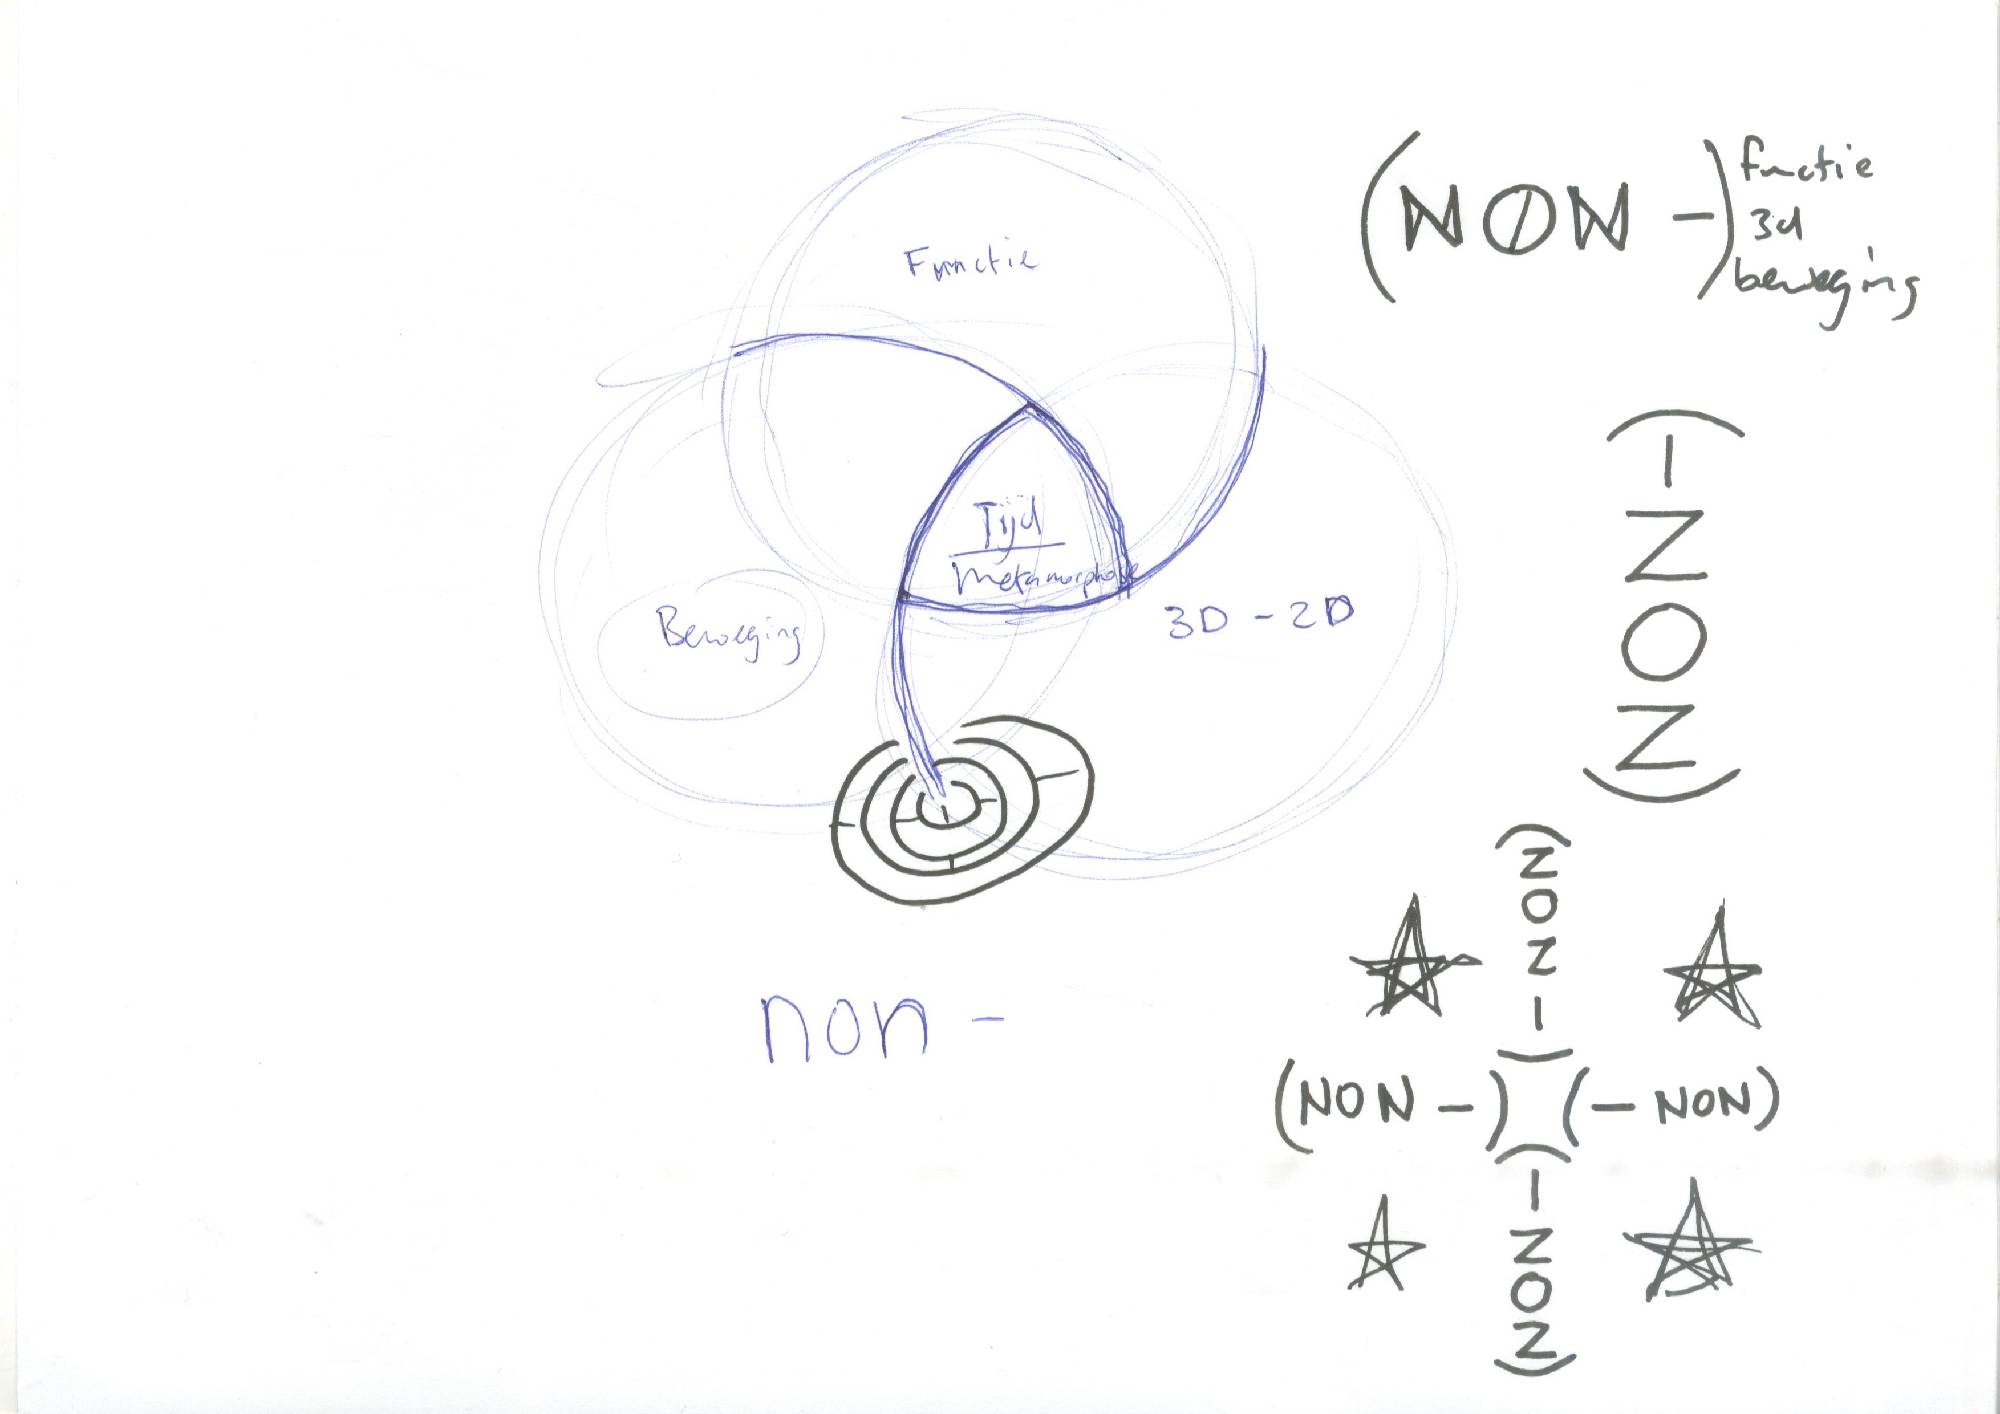 Functie
Tijd
metamorphose
Beweging
3D - 2D
non -
(NON -)
functie
3d
beweging
(- NON)
(NON -)
(NON -) (- NON)
(- NON)